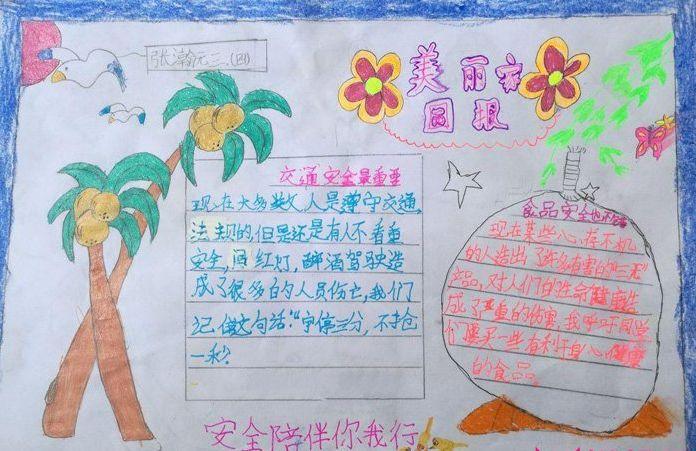 张瀚元三.(四)
美丽家
园报
交通安全最重要
现在大多数人是遵守交通
法规的,但是还是有人不看重
安全,闯红灯,醉酒驾驶造
成了很多的人员伤亡,我们
记住这句话:"宁停三分,不抢
一秒?
食品安全也
现在某些心存不轨
的人造出了许多有害的"三无"
产品,对人们的生命健康造
成了严重的伤害,我呼吁同学
们要买一些有利于身心健康
的食品。
安全陪伴你我行